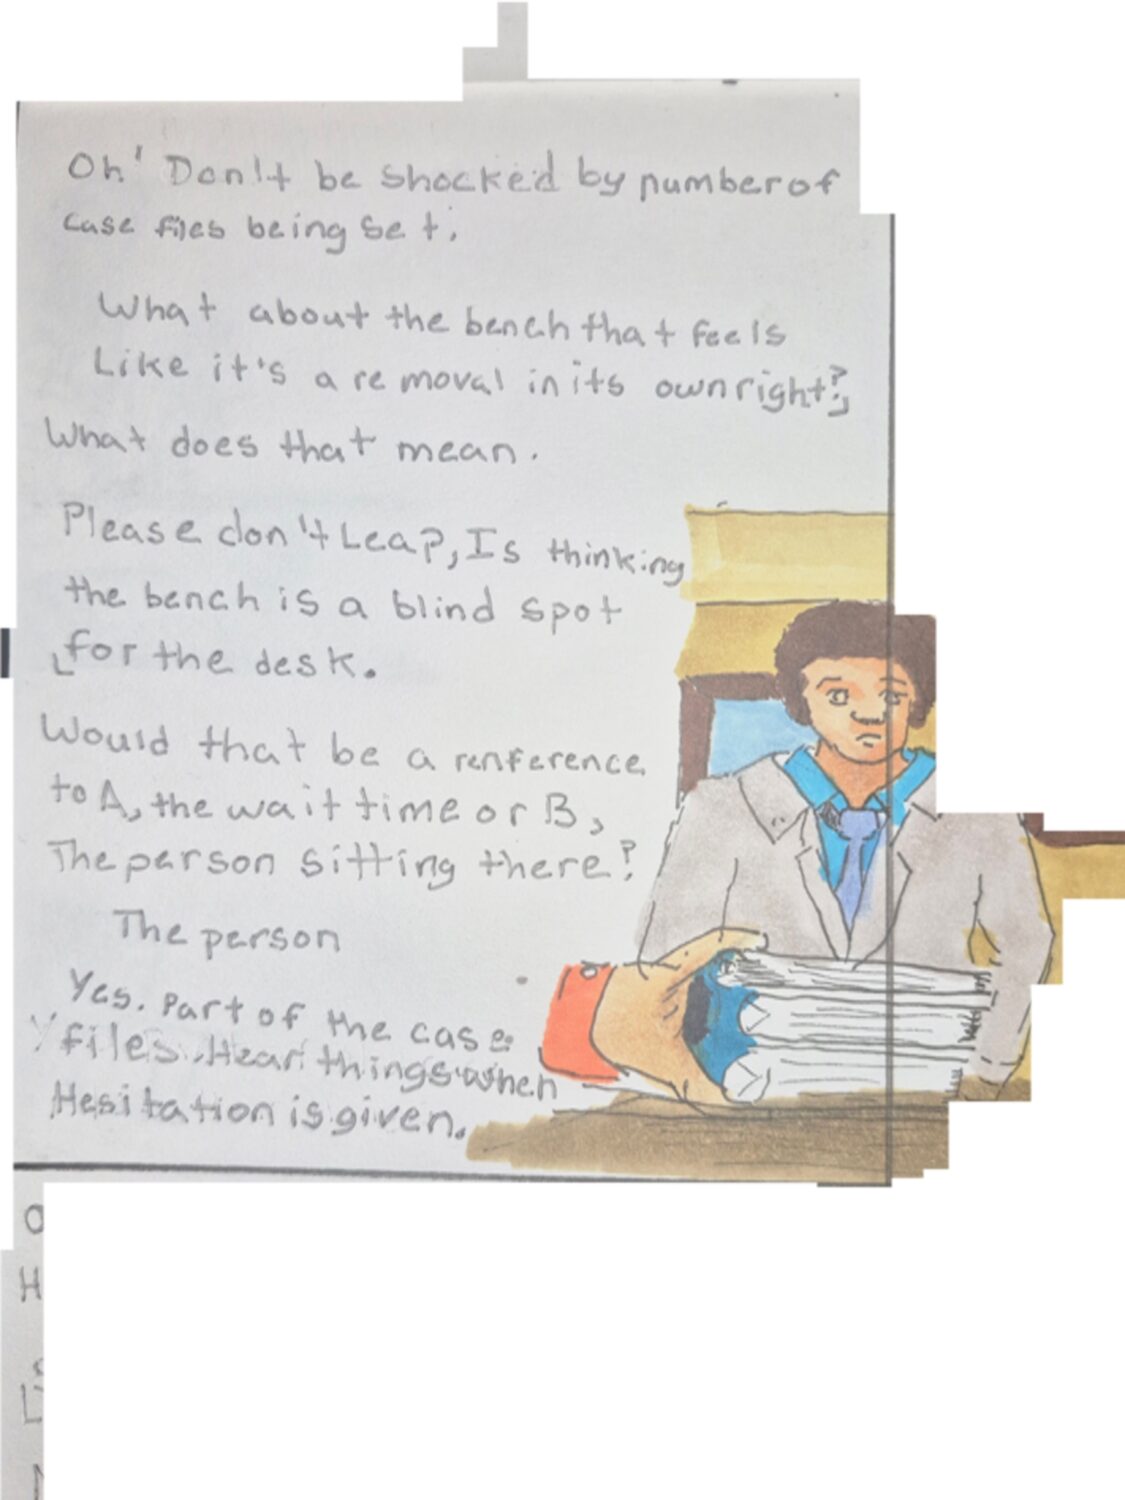 Oh! Don't be shocked by number of
case files being set.
What about the bench that feels
Like it's a removal in its own right?
What does that mean.
Please don't Leap, Is thinking
the bench is a blind spot
for the desk.
Would that be a renference
to A, the wait time or B,
The person sitting there?
The person
Yes. Part of the case
files. Hear things when
Hesitation is given.